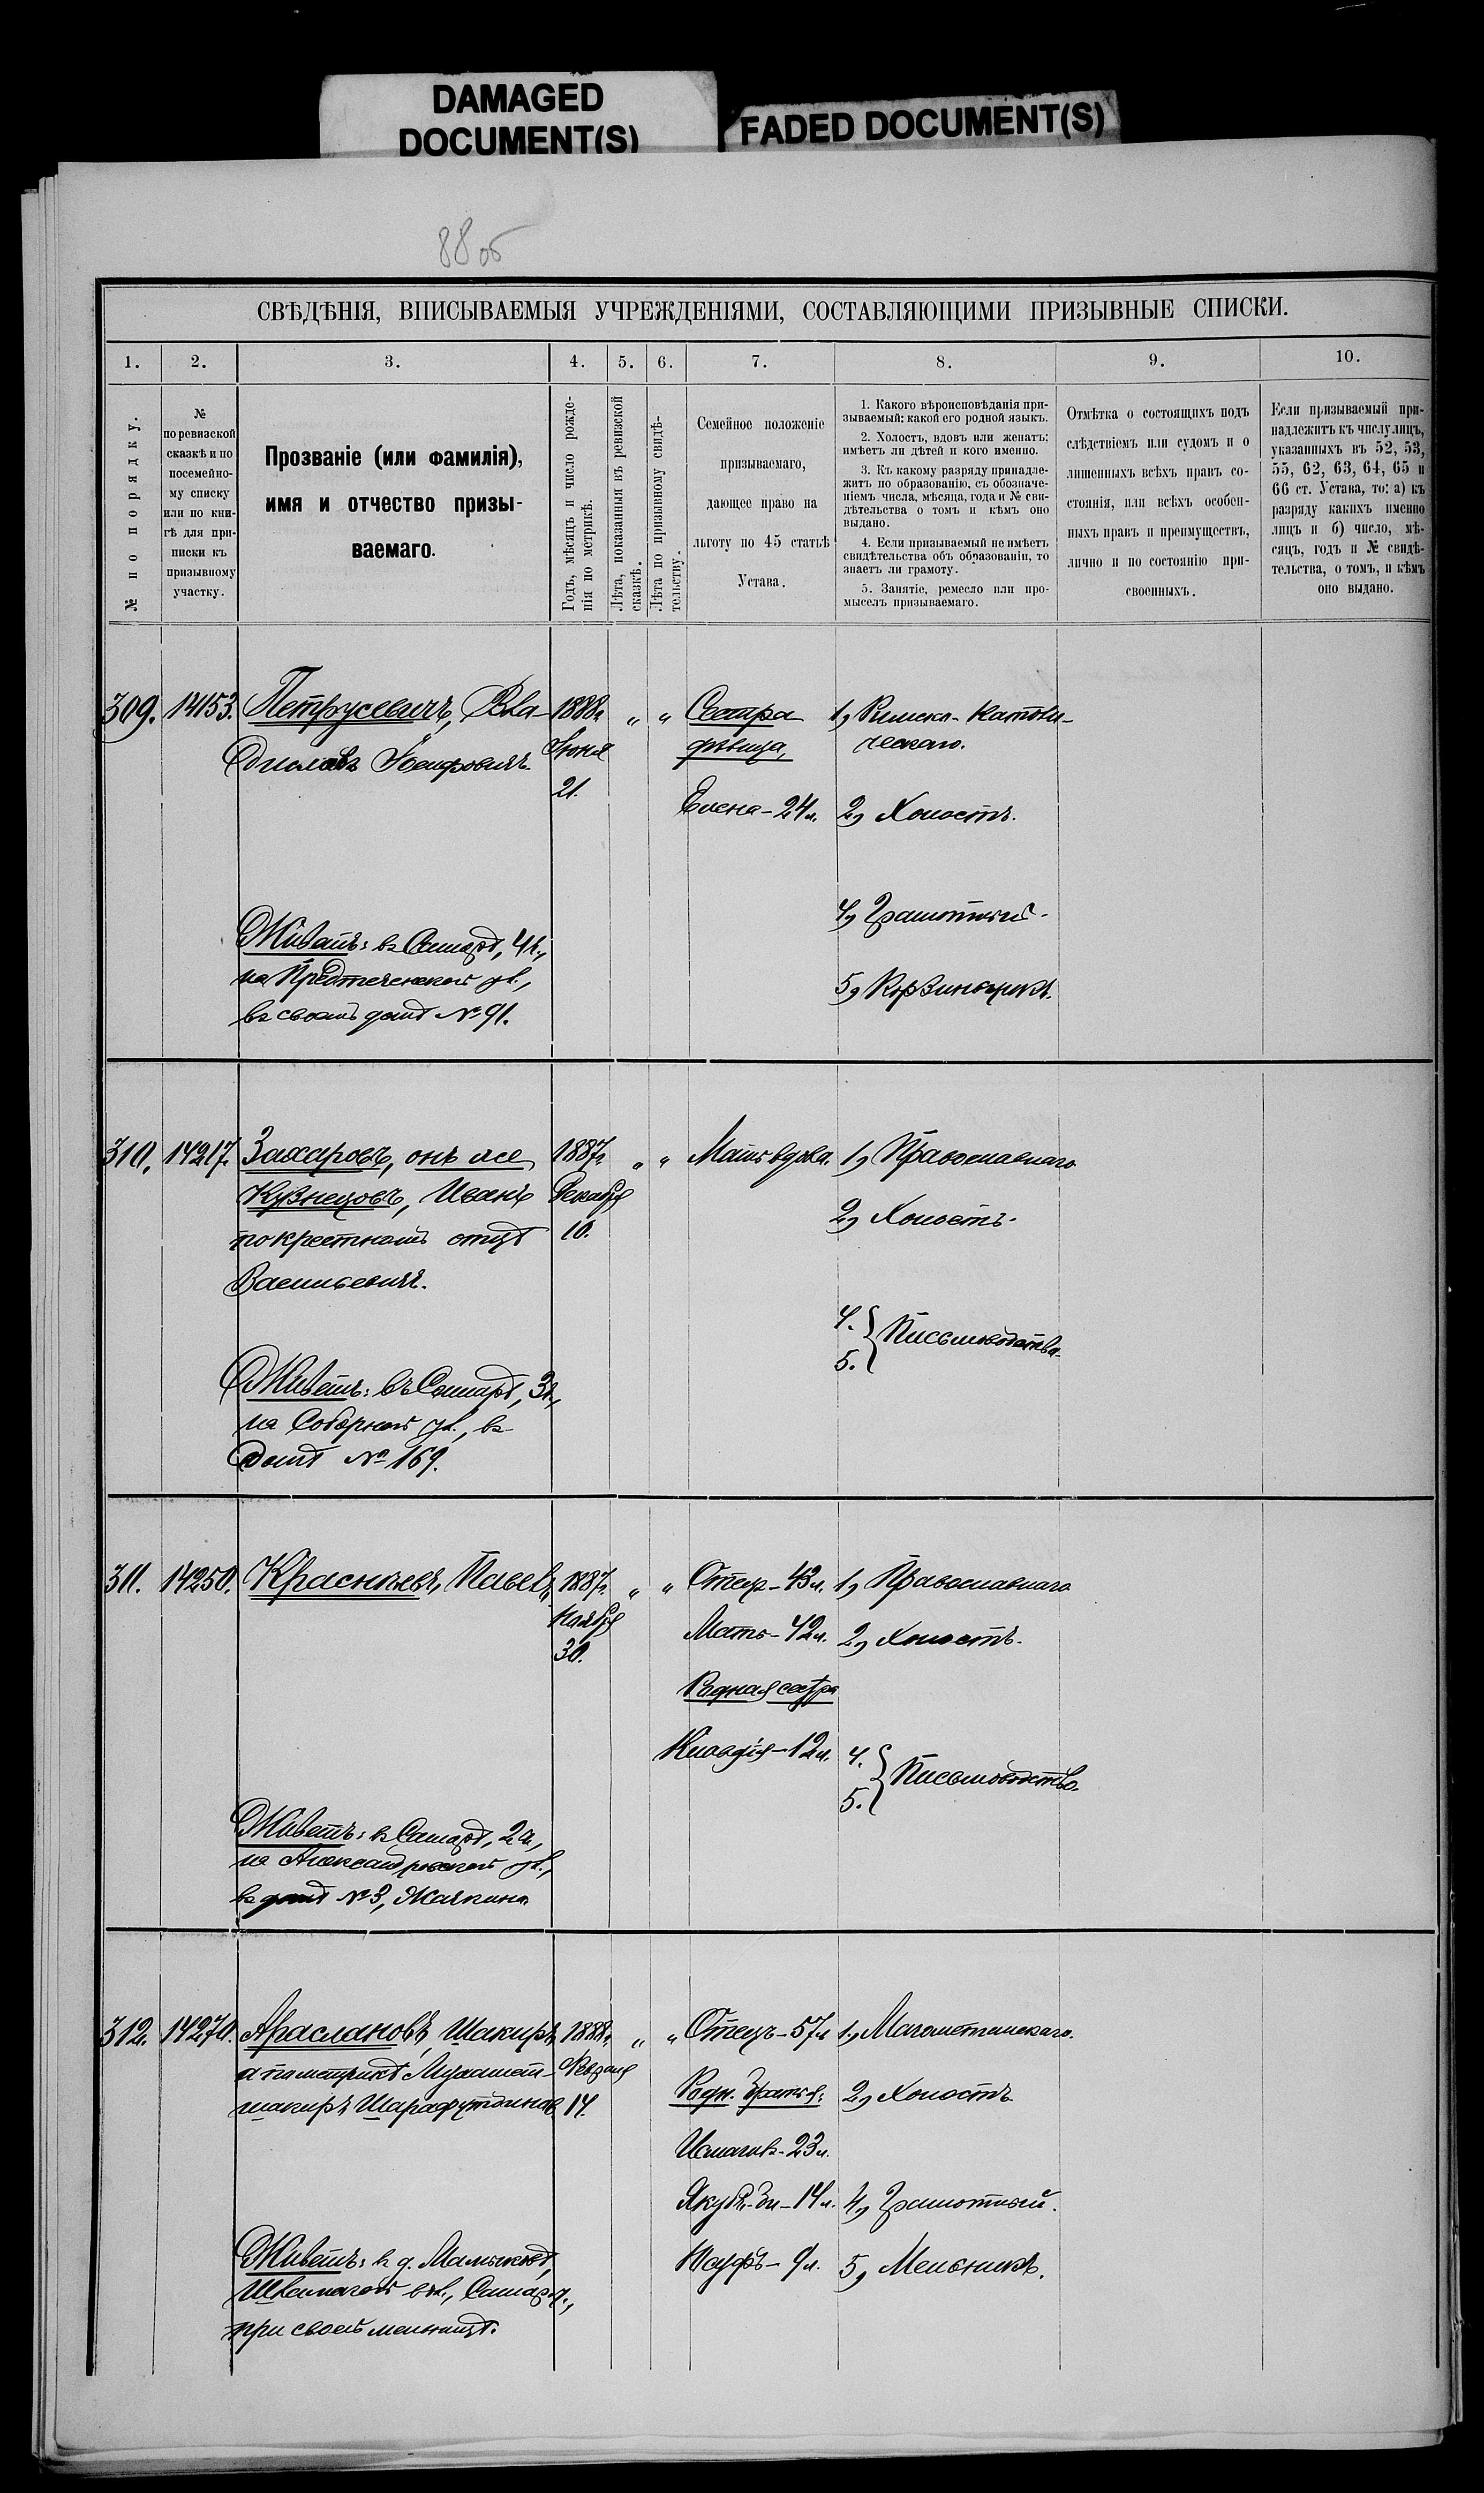 DAMAGED
DOCUMENT(S)
FADED DOCUMENT(S)
88 об
СВѢДѢНІЯ, ВПИСЫВАЕМЫЯ УЧРЕЖДЕНІЯМИ, СОСТАВЛЯЮЩИМИ ПРИЗЫВНЫЕ СПИСКИ.
1. 2. 3. 4. 5. 6. 7. 8. 9. 10.
№ по порядку.
№
по ревизской
сказкѣ и по
посемейно-
му списку
или по кни-
гѣ для при-
писки къ
призывному
участку.
Прозваніе (или фамилія),
имя и отчество призы-
ваемаго.
Годъ, мѣсяцъ и число рожде-
нія по метрикѣ.
Лѣта, показанныя въ ревизской
сказкѣ.
Лѣта по призывному свидѣ-
тельству.
Семейное положеніе
призываемаго,
дающее право на
льготу по 45 статьѣ
Устава.
1. Какого вѣроисповѣданія при-
зываемый: какой его родной языкъ.
2. Холостъ, вдовъ или женатъ;
имѣетъ ли дѣтей и кого именно.
3. Къ какому разряду принадле-
житъ по образованію, съ обозначе-
ніемъ числа, мѣсяца, года и № сви-
дѣтельства о томъ и кѣмъ оно
выдано.
4. Если призываемый не имѣетъ
свидѣтельства объ образованіи, то
знаетъ ли грамоту.
5. Занятіе, ремесло или про-
мыселъ призываемаго.
Отмѣтка о состоящихъ подъ
слѣдствіемъ или судомъ и о
лишенныхъ всѣхъ правъ со-
стоянія, или всѣхъ особен-
ныхъ правъ и преимуществъ,
лично и по состоянію при-
своенныхъ.
Если призываемый при-
надлежитъ къ числу лицъ,
указанныхъ въ 52, 53,
55, 62, 63, 64, 65 и
66 ст. Устава, то: а) къ
разряду какихъ именно
лицъ и б) число, мѣ-
сяцъ, годъ и № свидѣ-
тельства, о томъ, и кѣмъ
оно выдано.
309. 14153. Петрусевичъ, Вла-
диславъ
Живетъ: въ Самарѣ, 4 ч.,
на Предтеченской ул.,
въ своемъ домѣ № 91.
1888 г.
Іюня
21.
" "
Сестра
дѣвица,
Елена - 24 л.
1, Римско-Католи-
ческаго.
2, Холостъ.
4, Грамотный.
5, Корзинщикъ.
310. 14217. Захаровъ, онъ же
Кузнецовъ, Иванъ
по крестномъ отцѣ
Васильевичъ.
Живетъ: въ Самарѣ, 3 ч.,
на Соборной ул., въ
домѣ № 169.
1887 г.
Декабря
10.
" "
Мать вдова.
1, Православнаго
2, Холостъ.
4.
5. Письмоводство.
311. 14250. Красняевъ, Павелъ,
Живетъ: въ Самарѣ, 2 ч.,
на Александровской ул.,
въ домѣ № 3,
1887 г.
Ноября
30.
" "
Отецъ - 43 л.
Мать - 42 л.
Родная сестра
Клавдія - 12 л.
1, Православнаго
2, Холостъ.
4.
5. Письмоводство.
312. 14270. Араслановъ, Шакиръ,
а по метрикѣ Мухамет-
шакиръ Шарафутдиновъ
Живетъ: въ д. Мамыковѣ,
вол., Самар. у.,
при своей мельницѣ.
1888 г.
Февраля
14.
" "
Отецъ - 57 л.
Родн. братья:
Исмагилъ - 23 л.
14 л.
Рауфъ - 9 л.
1, Магометанскаго.
2, Холостъ
4, Грамотный.
5, Мельникъ.